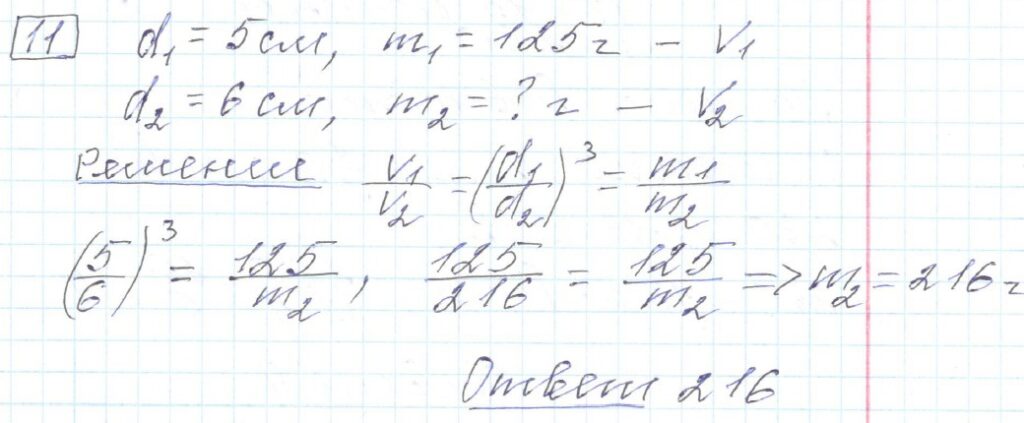 11 d₁ = 5 см, m₁ = 125 г – V₁
d₂ = 6 см, m₂ = ? г – V₂
Решение V₁/V₂ = (d₁/d₂)³ = m₁/m₂
(5/6)³ = 125/m₂, 125/216 = 125/m₂ => m₂ = 216 г
Ответ 216